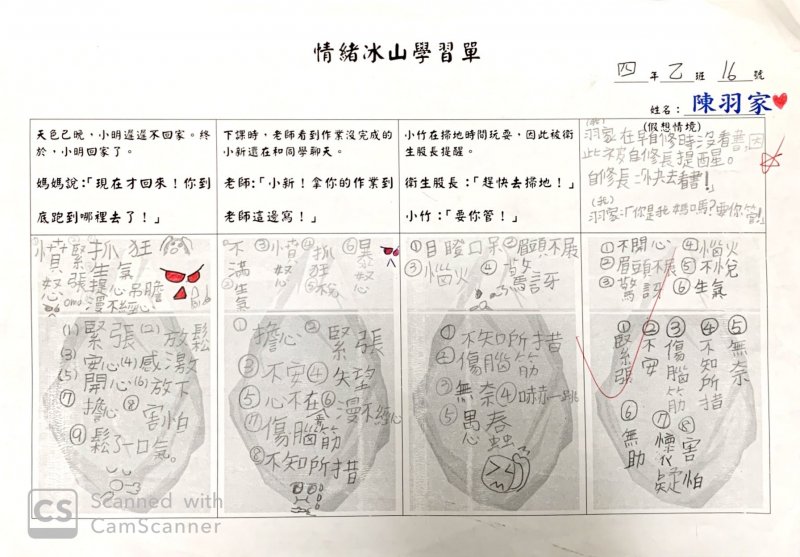 情緒冰山學習單
四 年 乙 班 16 號
姓名： 陳羽家
天色已晚，小明遲遲不回家。終
於，小明回家了。
媽媽說：「現在才回來！你到
底跑到哪裡去了！」
下課時，老師看到作業沒完成的
小新還在和同學聊天。
老師：「小新！拿你的作業到
老師這邊寫！」
小竹在掃地時間玩耍，因此被衛
生股長提醒。
衛生股長：「趕快去掃地！」
小竹：「要你管！」
(假想情境)
(我)
羽家在早自修時沒看書，因
此被自修長提醒。
自修長：外快去看書！」
(我)
羽家：「你是我媽嗎？要你管！」
憤怒
緊張
抓狂
生氣
提心吊膽
漫不經心
不滿
②生氣
③憤怒
④抓狂
⑥暴怒
①目瞪口呆②眉頭不展
③惱火 ④驚訝
①不開心 ④惱火
②眉頭不展 ⑤不悅
③驚訝 ⑥生氣
(1)緊張(2)放鬆
(3)安心(4)感激
(5)開心(6)放下
⑦擔心⑧害怕
⑨鬆了一口氣。
①擔心②緊張
③不安④失望
⑤心不在焉⑥漫不經心
⑦傷腦筋
⑧不知所措
①不知所措
②傷腦筋
③無奈④嚇一跳
⑤愚蠢
①緊張
②不安
③傷腦筋
④不知所措
⑤無奈
⑥無助
⑦懷疑
⑧害怕
CS Scanned with
CamScanner